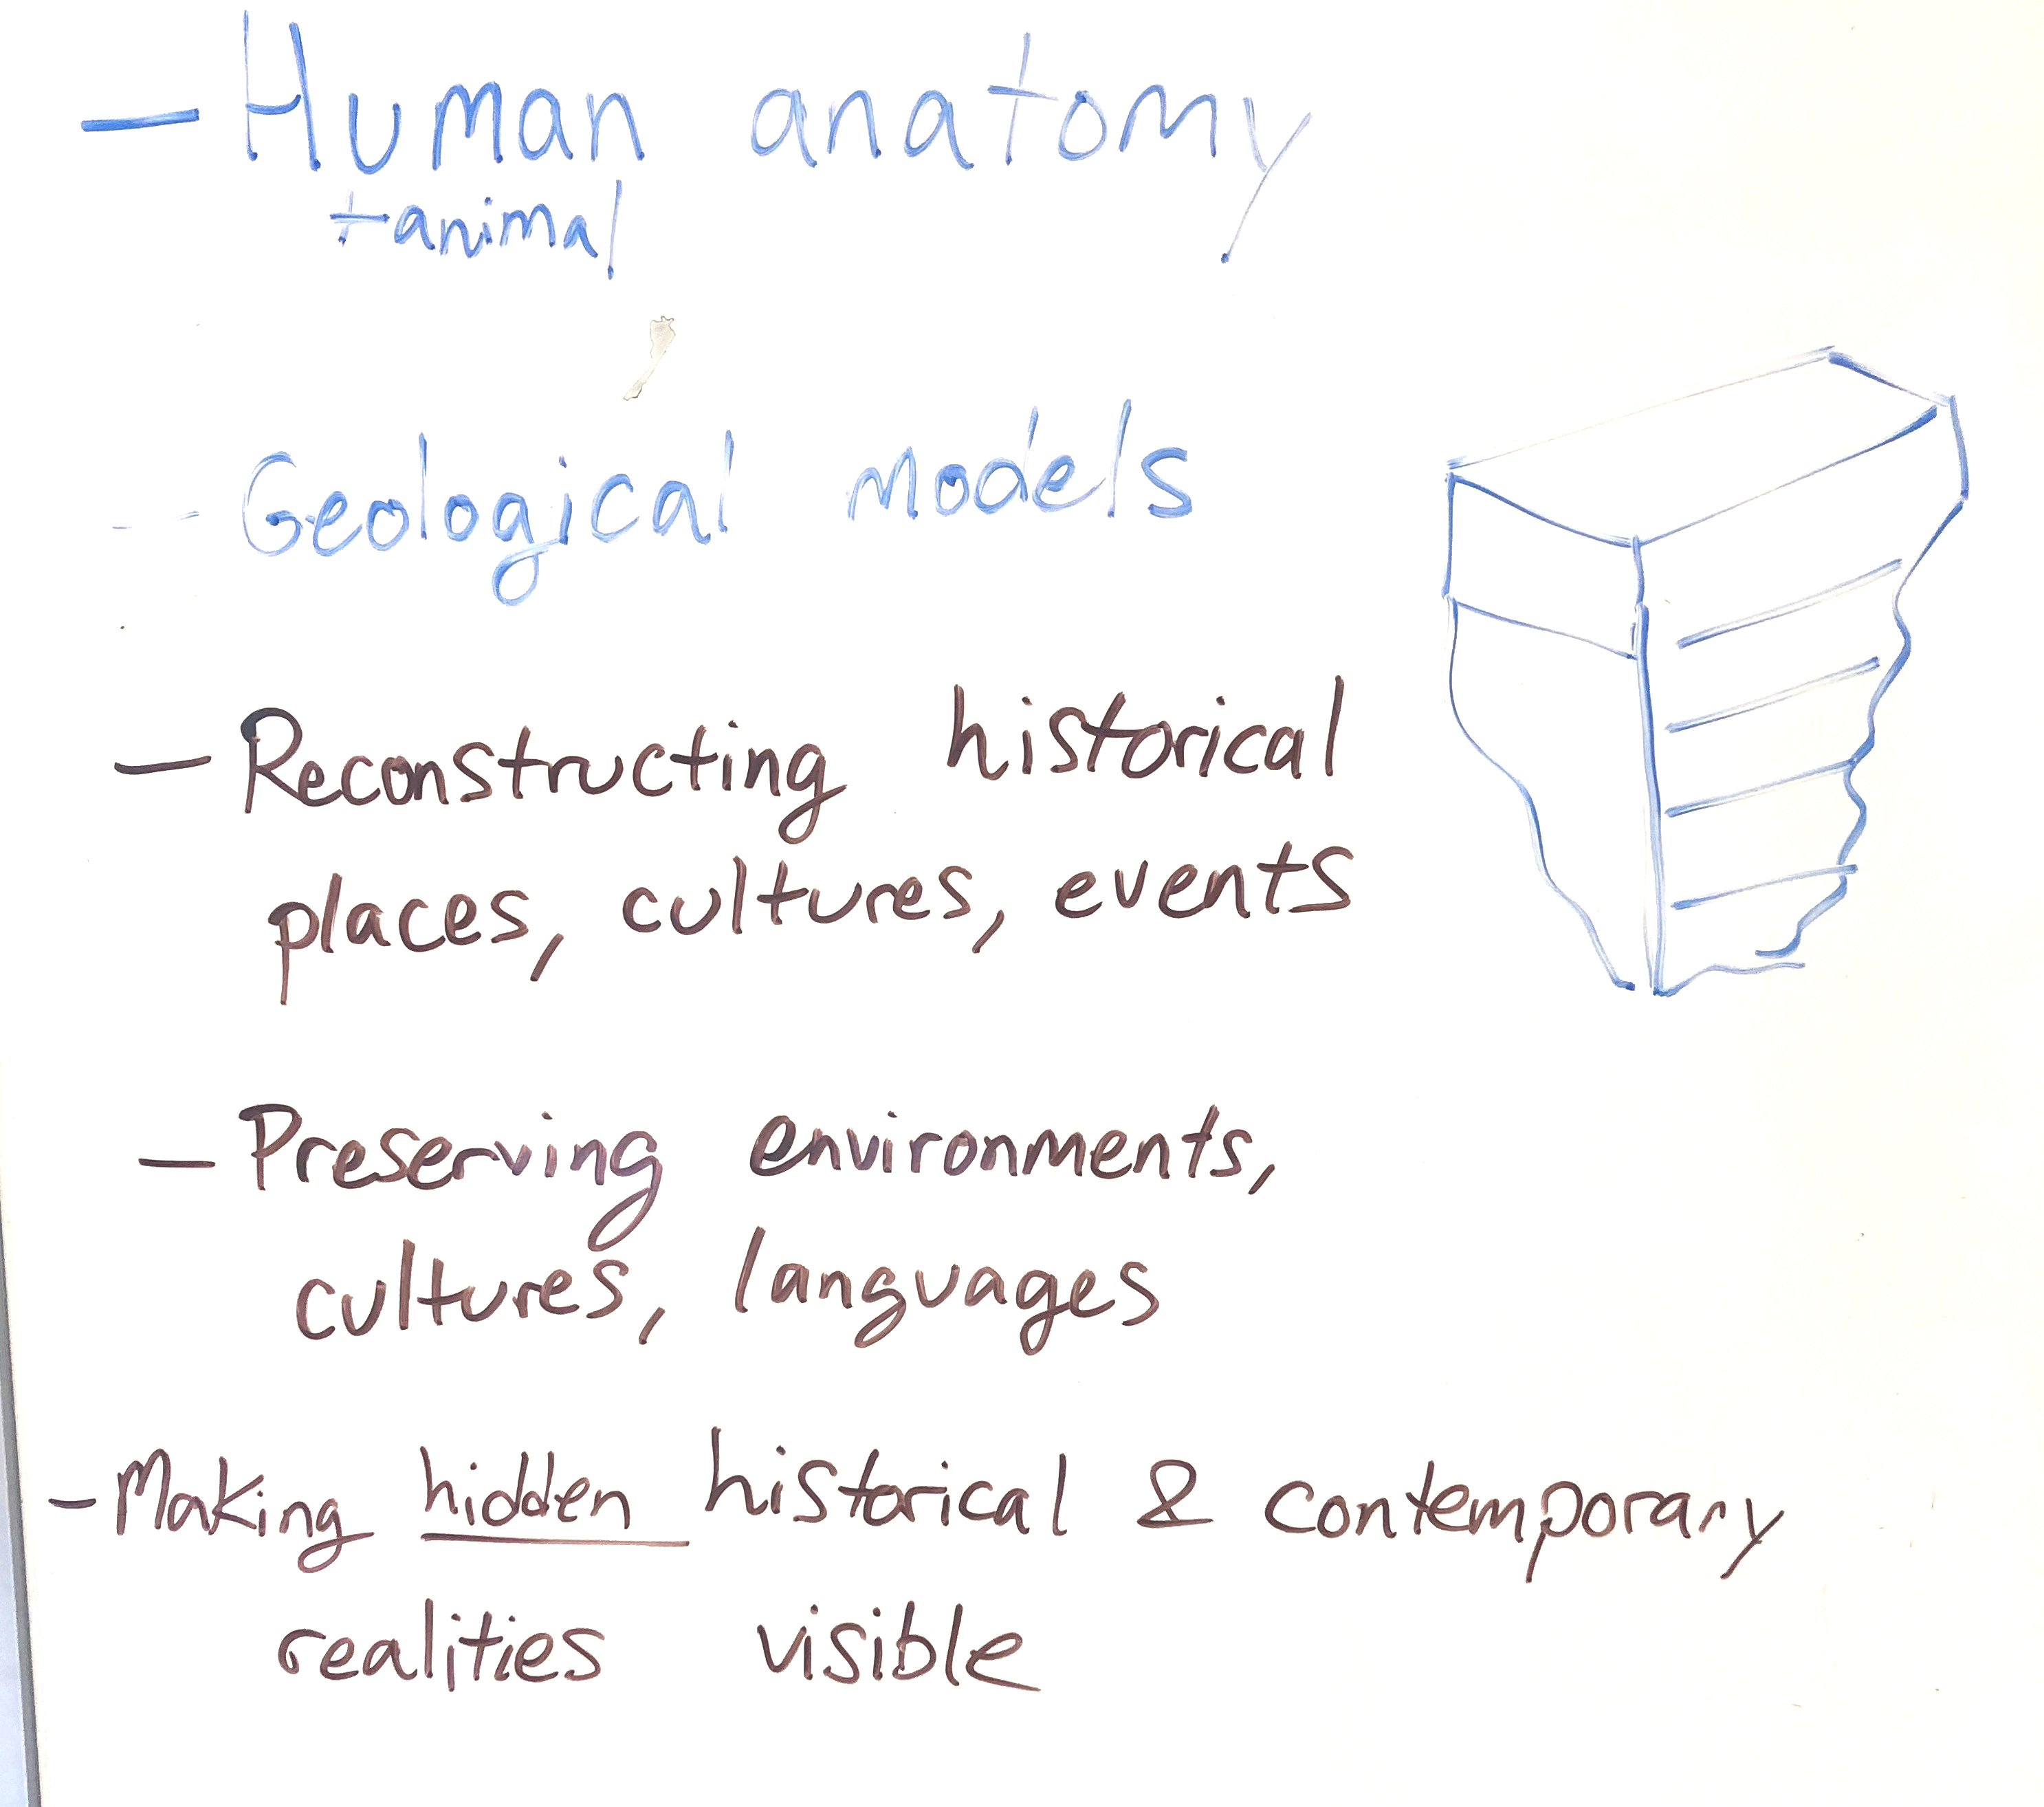 - Human anatomy
+animal
- Geological models
- Reconstructing historical
places, cultures, events
- Preserving environments,
cultures, languages
- Making hidden historical & contemporary
realities visible